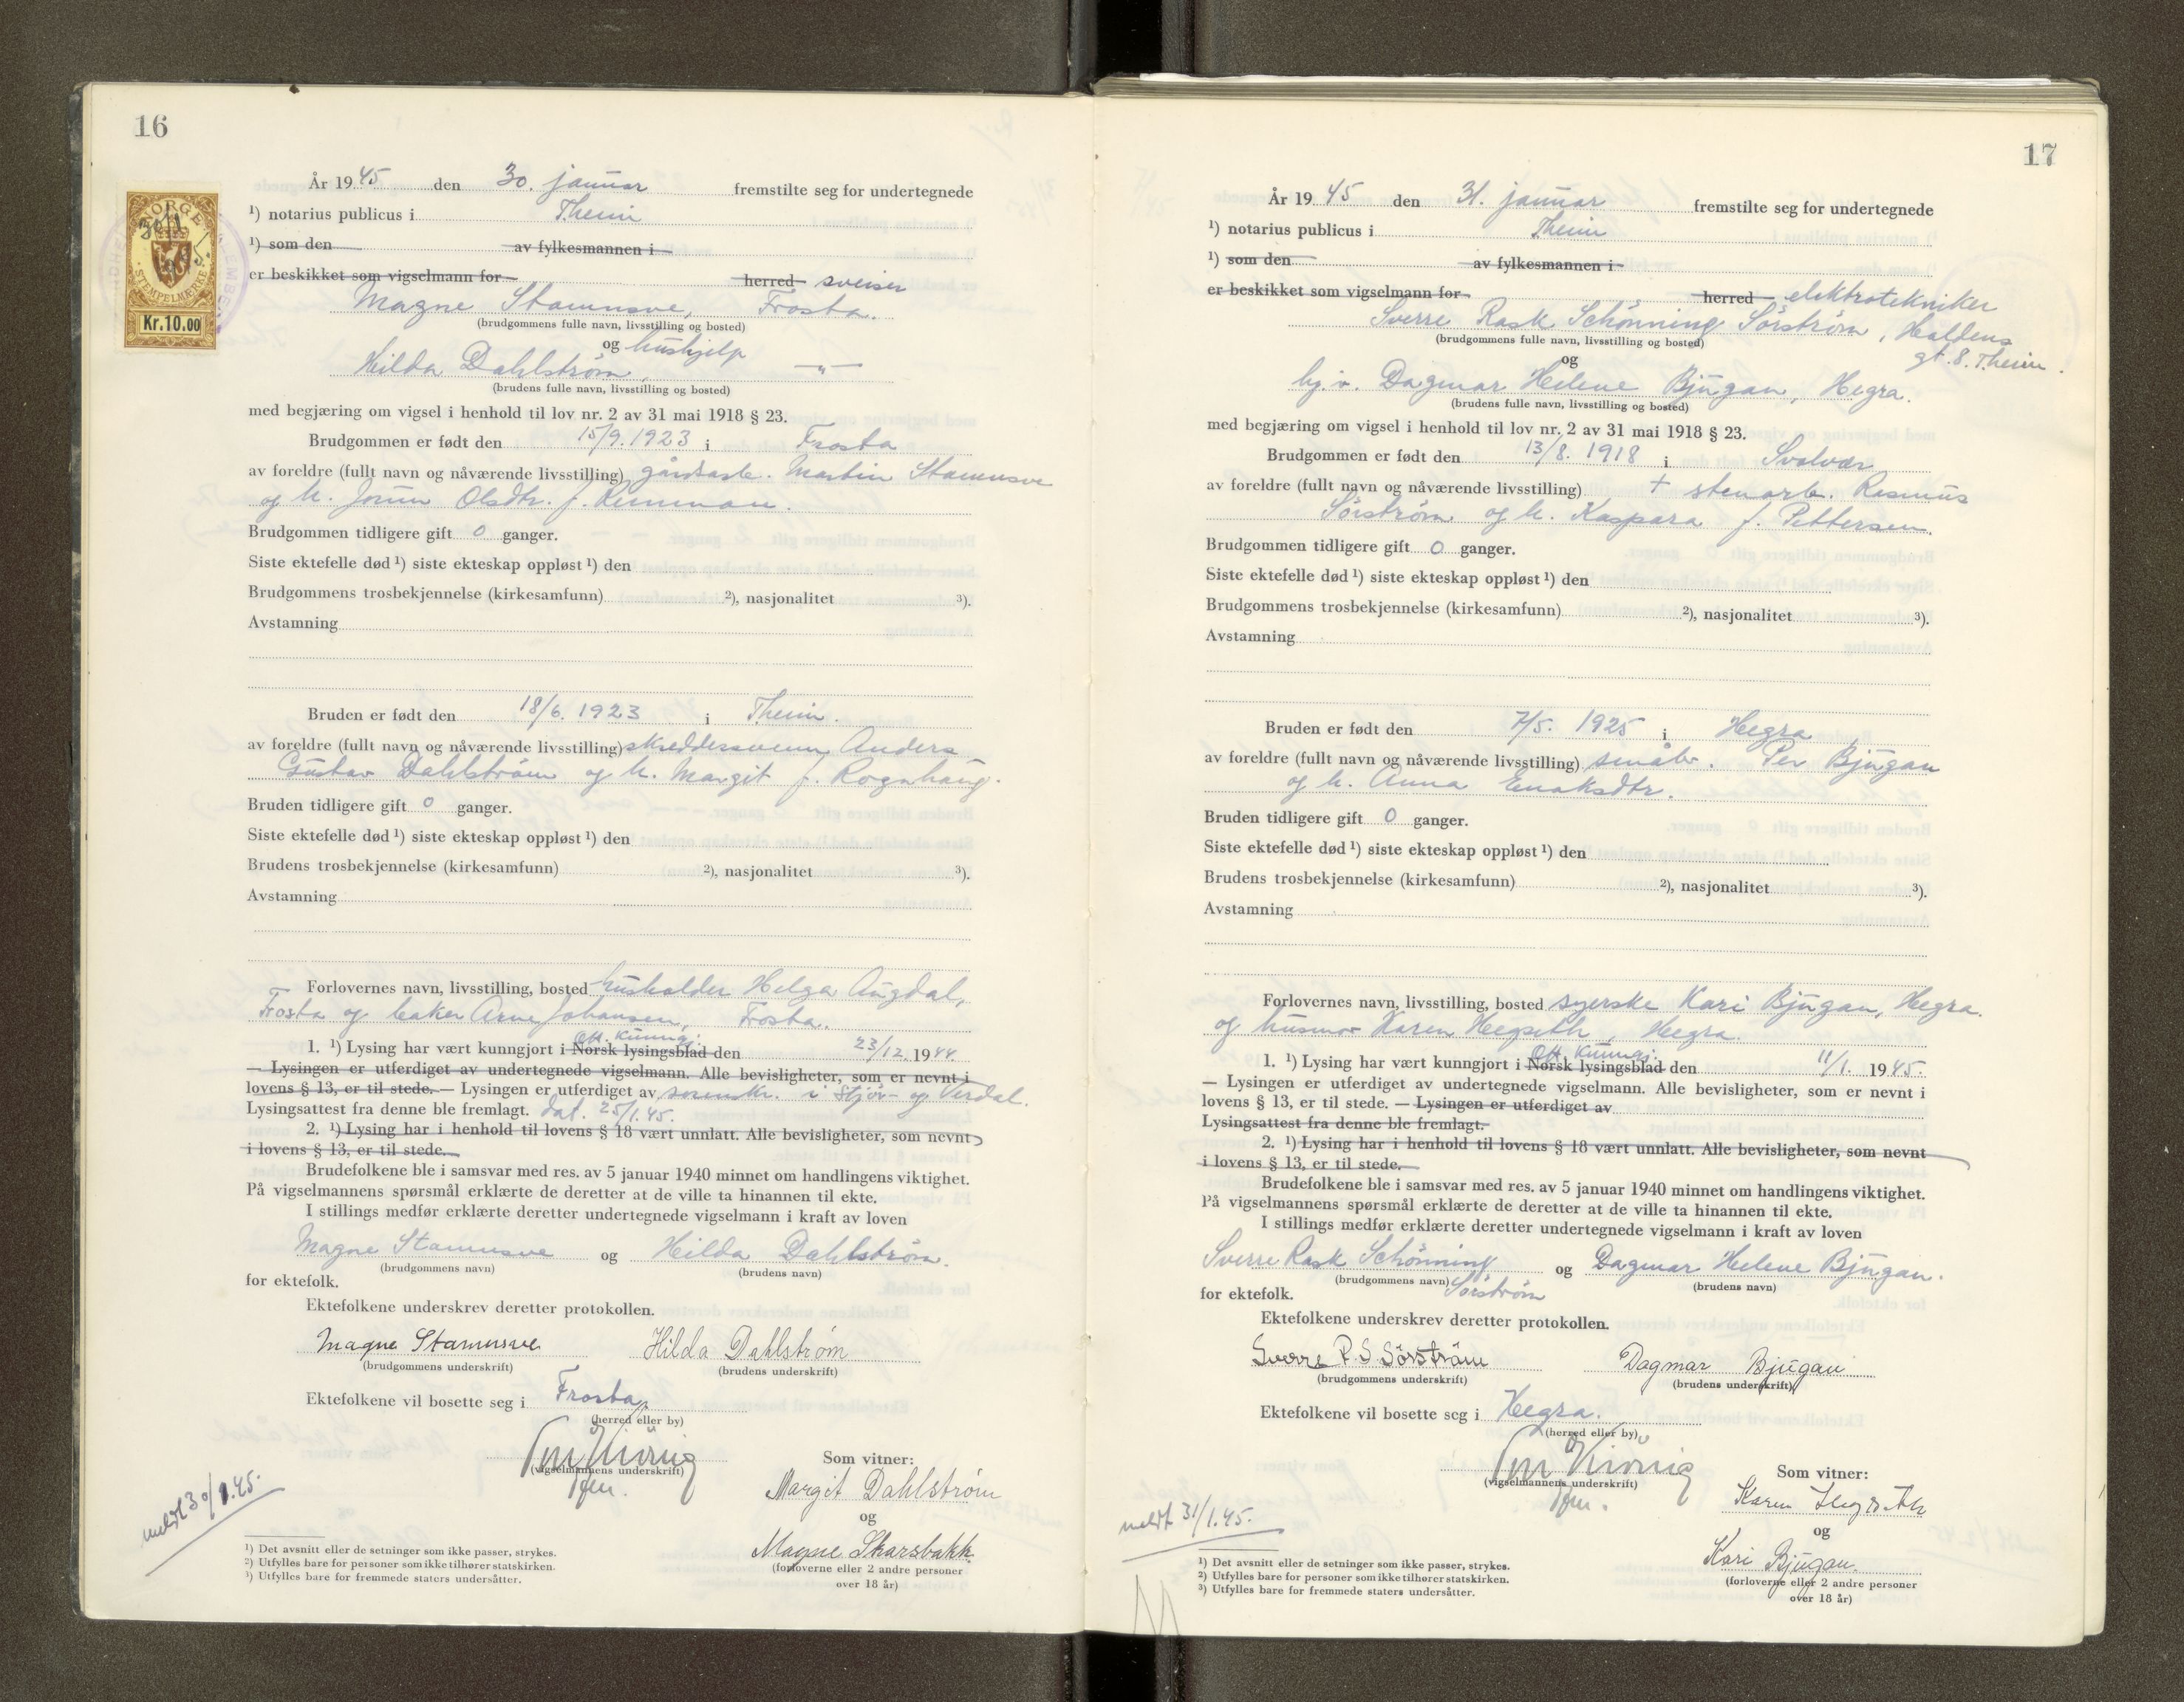 16
År 1945 den 30. januar fremstilte seg for undertegnede
¹) notarius publicus i Theim
¹) som den av fylkesmannen i
er beskikket som vigselmann for herred sveiser
Magne Stamnsve, Frosta.
(brudgommens fulle navn, livsstilling og bosted)
og hushjelp
Hilda Dahlström, —"—
(brudens fulle navn, livsstilling og bosted)
med begjæring om vigsel i henhold til lov nr. 2 av 31 mai 1918 § 23.
Brudgommen er født den 15/9. 1923 i Frosta
av foreldre (fullt navn og nåværende livsstilling) gårdsarb. Martin Stamnsve
og h. Olsdtr. f.
Brudgommen tidligere gift 0 ganger.
Siste ektefelle død ¹) siste ekteskap oppløst ¹) den
Brudgommens trosbekjennelse (kirkesamfunn) ²), nasjonalitet ³).
Avstamning
Bruden er født den 18/6. 1923 i Theim.
av foreldre (fullt navn og nåværende livsstilling) skreddersvenn Anders
Gustav Dahlström og h. Margit f. Rognhaug.
Bruden tidligere gift 0 ganger.
Siste ektefelle død ¹) siste ekteskap oppløst ¹) den
Brudens trosbekjennelse (kirkesamfunn) ²), nasjonalitet ³).
Avstamning
Forlovernes navn, livsstilling, bosted husholder Helga Augdal,
Frosta og baker Arne Johansen, Frosta.
Off. Kunngj.
1. ¹) Lysing har vært kunngjort i Norsk lysingsblad den 23/12. 1944.
— Lysingen er utferdiget av undertegnede vigselmann. Alle bevisligheter, som er nevnt i
lovens § 13, er til stede. — Lysingen er utferdiget av sorenskr. i Stjør- og Verdal.
Lysingsattest fra denne ble fremlagt. dat. 25/1.45.
2. ¹) Lysing har i henhold til lovens § 18 vært unnlatt. Alle bevisligheter, som nevnt
i lovens § 13, er til stede.
Brudefolkene ble i samsvar med res. av 5 januar 1940 minnet om handlingens viktighet.
På vigselmannens spørsmål erklærte de deretter at de ville ta hinannen til ekte.
I stillings medfør erklærte deretter undertegnede vigselmann i kraft av loven
Magne Stamnsve og Hilda Dahlström.
(brudgommens navn) (brudens navn)
for ektefolk.
Ektefolkene underskrev deretter protokollen.
Magne Stamnsve Hilda Dahlström
(brudgommens underskrift) (brudens underskrift)
Ektefolkene vil bosette seg i Frosta.
(herred eller by)
(vigselmannens underskrift)
Som vitner:
Margit Dahlström
og
Magne Skarsbakk
(forloverne eller 2 andre personer
over 18 år)
meldt 30/1.45.
¹) Det avsnitt eller de setninger som ikke passer, strykes.
²) Utfylles bare for personer som ikke tilhører statskirken.
³) Utfylles bare for fremmede staters undersåtter.
NORGE
30/1
STEMPELMERKE
Kr.10.00
17
År 1945 den 31. januar fremstilte seg for undertegnede
¹) notarius publicus i Theim
¹) som den av fylkesmannen i
er beskikket som vigselmann for herred elektrotekniker
Sverre Rask Schönning Sörström, Haldens
gt. 8. Theim.
(brudgommens fulle navn, livsstilling og bosted)
og
hj.v. Dagmar Helene Bjûgan, Hegra.
(brudens fulle navn, livsstilling og bosted)
med begjæring om vigsel i henhold til lov nr. 2 av 31 mai 1918 § 23.
Brudgommen er født den 13/8. 1918 i Svolvær
av foreldre (fullt navn og nåværende livsstilling) + stenarb. Rasmus
Sörström og h. Kaspara f. Pettersen.
Brudgommen tidligere gift 0 ganger.
Siste ektefelle død ¹) siste ekteskap oppløst ¹) den
Brudgommens trosbekjennelse (kirkesamfunn) ²), nasjonalitet ³).
Avstamning
Bruden er født den 7/5. 1925 i Hegra
av foreldre (fullt navn og nåværende livsstilling) småbr. Per Bjûgan
og h. Anna Enoksdtr.
Bruden tidligere gift 0 ganger.
Siste ektefelle død ¹) siste ekteskap oppløst ¹) den
Brudens trosbekjennelse (kirkesamfunn) ²), nasjonalitet ³).
Avstamning
Forlovernes navn, livsstilling, bosted syerske Kari Bjûgan, Hegra.
og husmor Karen Hegseth, Hegra.
Off. Kunngj.
1. ¹) Lysing har vært kunngjort i Norsk lysingsblad den 11/1. 1945.
— Lysingen er utferdiget av undertegnede vigselmann. Alle bevisligheter, som er nevnt i
lovens § 13, er til stede. — Lysingen er utferdiget av
Lysingsattest fra denne ble fremlagt.
2. ¹) Lysing har i henhold til lovens § 18 vært unnlatt. Alle bevisligheter, som nevnt
i lovens § 13, er til stede.
Brudefolkene ble i samsvar med res. av 5 januar 1940 minnet om handlingens viktighet.
På vigselmannens spørsmål erklærte de deretter at de ville ta hinannen til ekte.
I stillings medfør erklærte deretter undertegnede vigselmann i kraft av loven
Sverre Rask Schönning og Dagmar Helene Bjûgan.
(brudgommens navn) Sörström (brudens navn)
for ektefolk.
Ektefolkene underskrev deretter protokollen.
Sverre R.S. Sörström Dagmar Bjûgan
(brudgommens underskrift) (brudens underskrift)
Ektefolkene vil bosette seg i Hegra.
(herred eller by)
(vigselmannens underskrift)
Som vitner:
Karen Hegseth
og
Kari Bjûgan.
(forloverne eller 2 andre personer
over 18 år)
meldt 31/1.45.
¹) Det avsnitt eller de setninger som ikke passer, strykes.
²) Utfylles bare for personer som ikke tilhører statskirken.
³) Utfylles bare for fremmede staters undersåtter.